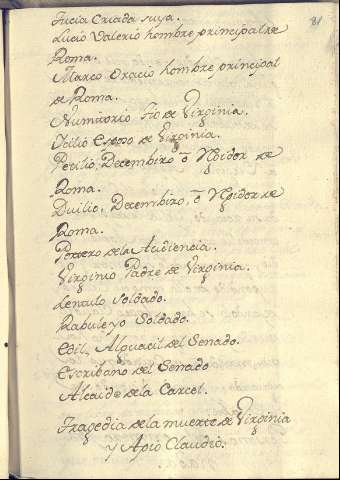 81
Lucia Criada suya.
Lucio Valerio hombre principal de
Roma.
Marco Oracio hombre principal
de Roma.
Numitorio Tio de Virginia.
Icilio Esposo de Virginia.
Petilio, Decembiro, ô Oŷdor de
Roma.
Duilio, Decembiro, ô Oŷdor de
Roma.
Portero de la Audiencia.
Virginio Padre de Virginia.
Lentulo Soldado.
Rabuleyo Soldado.
Edil, Alguacil del Senado.
Escribano del Senado
Alcaide de la Carcel.
Tragedia de la muerte de Virginia
y Apio Claudio.